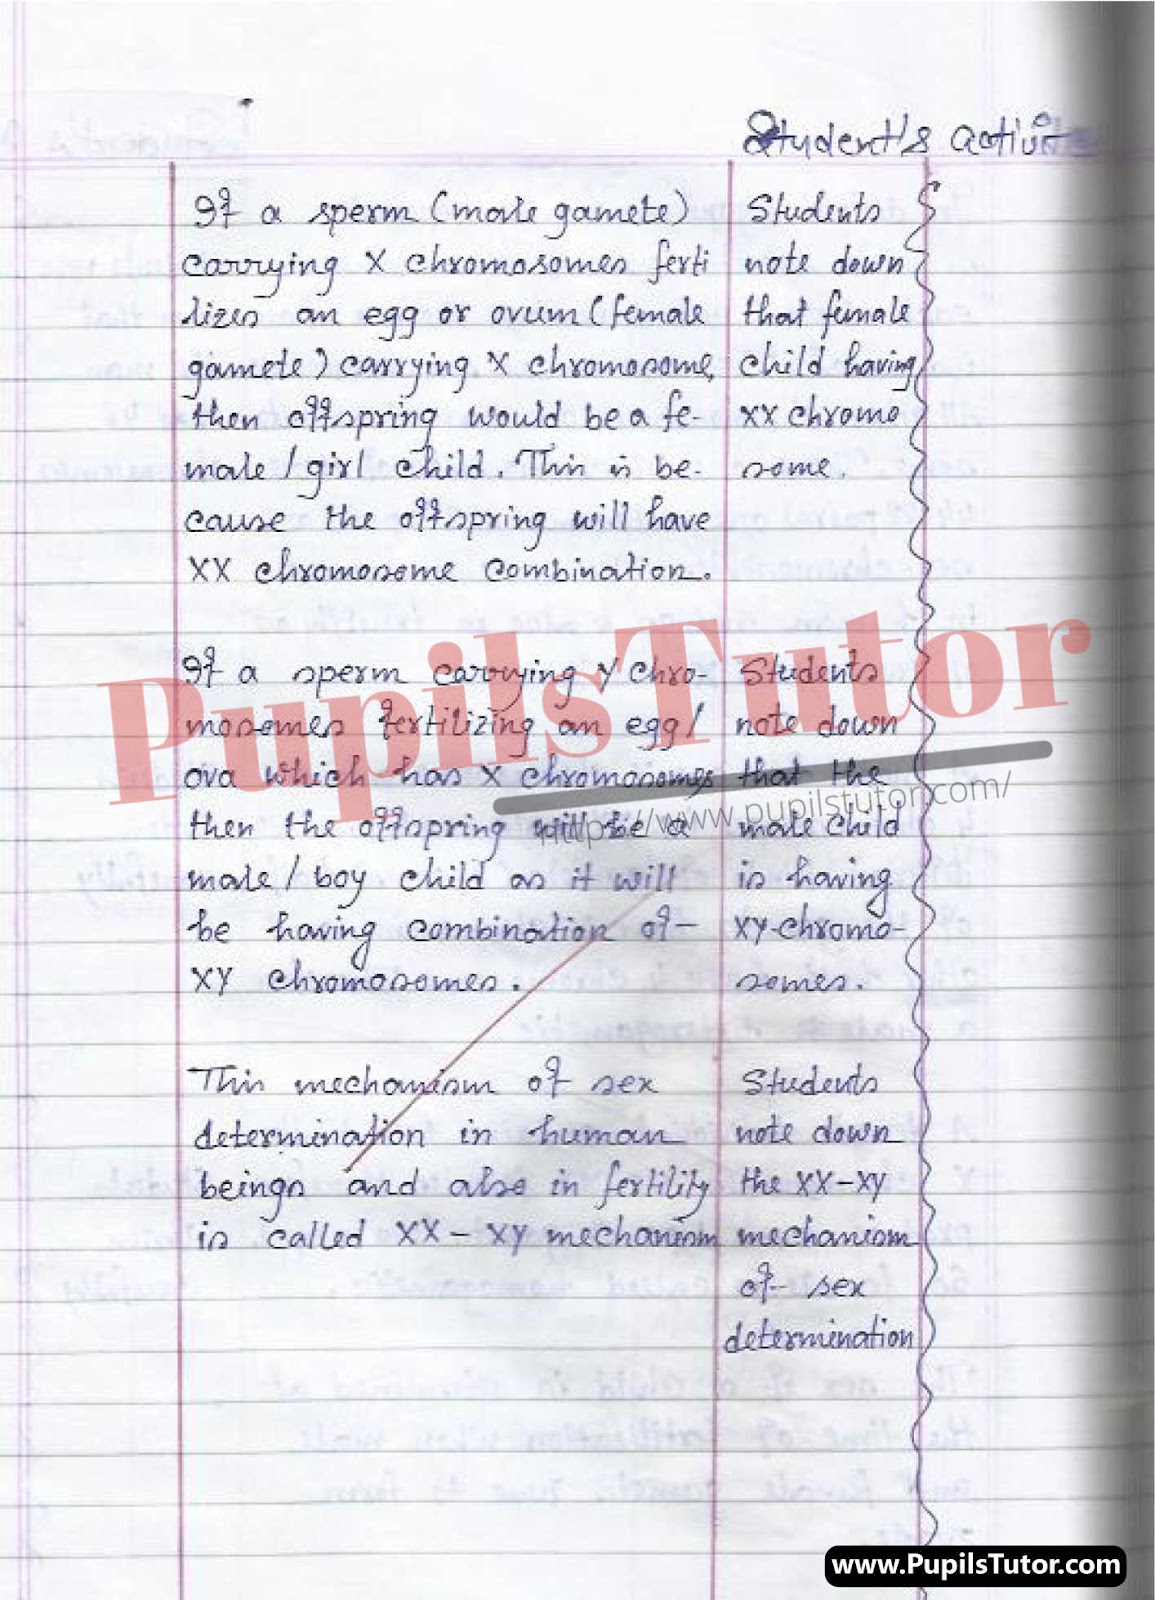 Student's activities
If a sperm (male gamete)
carrying X chromosomes ferti
lizes an egg or ovum (female
gamete) carrying X chromosome,
then offspring would be a fe-
male / girl child. This is be-
cause the offspring will have
XX chromosome combination.
Students
note down
that female
child having
XX chromo
some.
If a sperm carrying Y chro-
mosomes fertilizing an egg /
ova which has X chromosomes
then the offspring will be a
male / boy child as it will
be having combination of
XY chromosomes.
Students
note down
that the
male child
is having
XY-chromo-
somes.
This mechanism of sex
determination in human
beings and also in fertility
is called XX - XY mechanism
Students
note down
the XX-XY
mechanism
of sex
determination
PupilsTutor
https://www.pupilstutor.com/
www.PupilsTutor.com